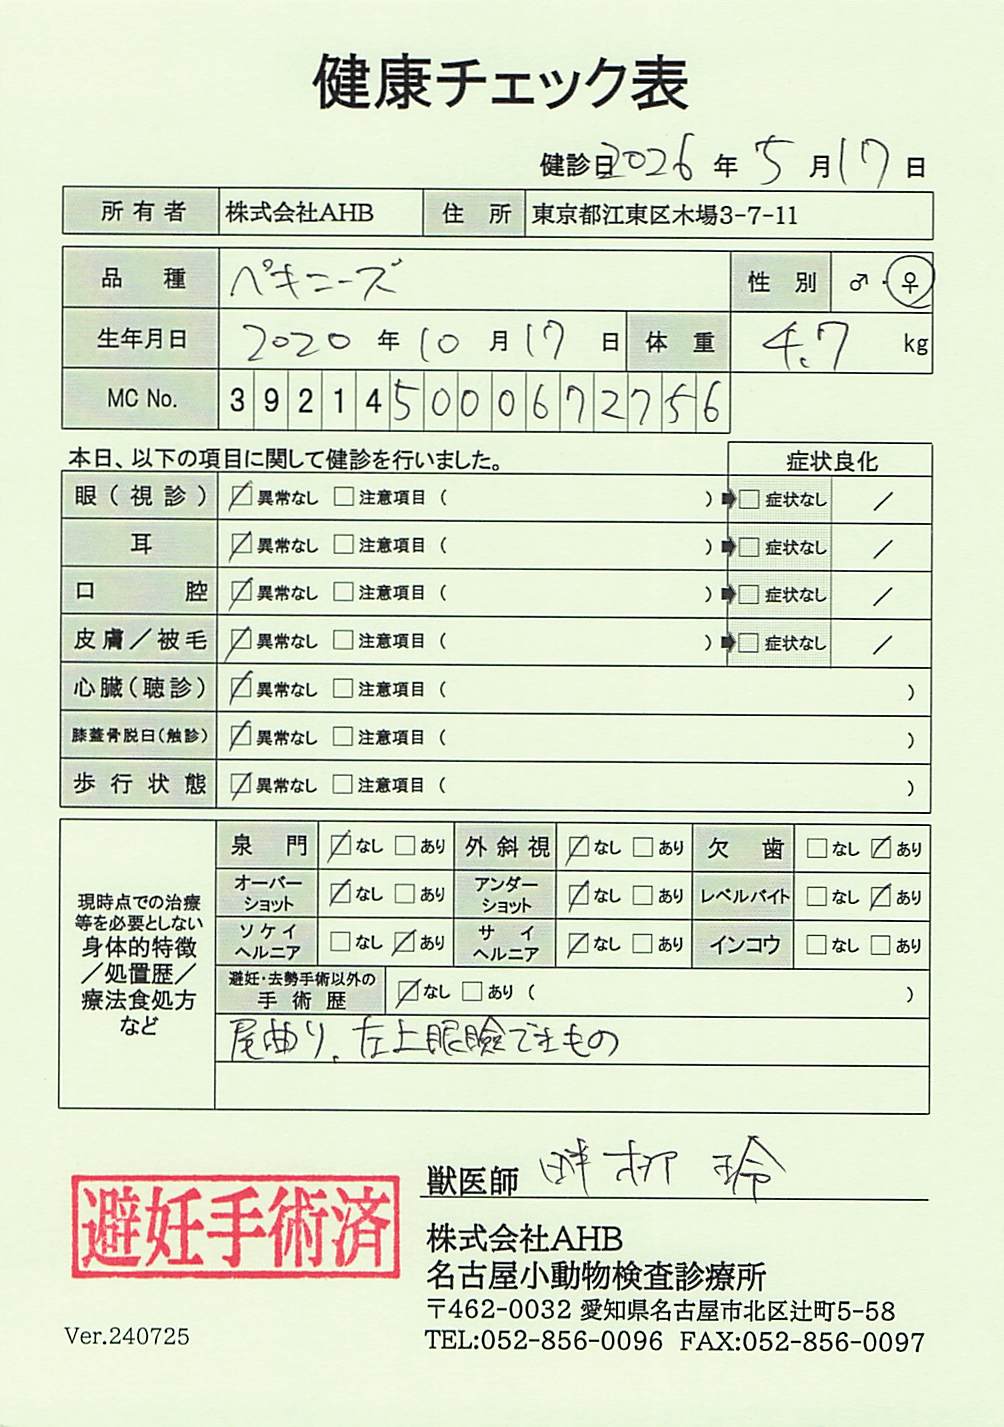 健康チェック表
健診日 2026 年 5 月 17 日
所有者 株式会社AHB 住所 東京都江東区木場3-7-11
品種 ペキニーズ 性別 ♂・♀
生年月日 2020 年 10 月 17 日 体重 4.7 kg
MC No. 392145000672756
本日、以下の項目に関して健診を行いました。 症状良化
眼(視診) ☑異常なし □注意項目 ( ) ➡ □症状なし /
耳 ☑異常なし □注意項目 ( ) ➡ □症状なし /
口腔 ☑異常なし □注意項目 ( ) ➡ □症状なし /
皮膚/被毛 ☑異常なし □注意項目 ( ) ➡ □症状なし /
心臓(聴診) ☑異常なし □注意項目 ( )
膝蓋骨脱臼(触診) ☑異常なし □注意項目 ( )
歩行状態 ☑異常なし □注意項目 ( )
現時点での治療
等を必要としない
身体的特徴
/処置歴/
療法食処方
など
泉門 ☑なし □あり 外斜視 ☑なし □あり 欠歯 □なし ☑あり
オーバーショット ☑なし □あり アンダーショット ☑なし □あり レベルバイト □なし ☑あり
ソケイヘルニア □なし ☑あり サイヘルニア ☑なし □あり インコウ □なし □あり
避妊・去勢手術以外の手術歴 ☑なし □あり ( )
尾曲り、左上眼瞼できもの
避妊手術済
獣医師 畔柳 玲
株式会社AHB
名古屋小動物検査診療所
〒462-0032 愛知県名古屋市北区辻町5-58
TEL:052-856-0096 FAX:052-856-0097
Ver.240725